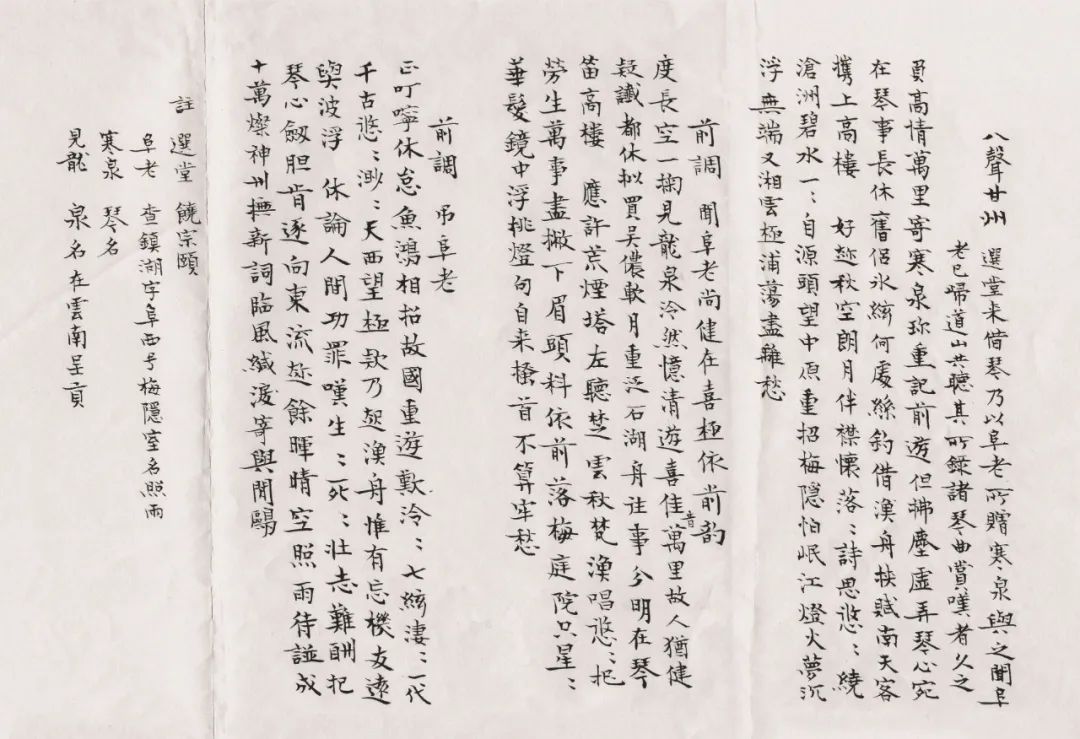 八聲甘州　選堂来借琴乃以阜老所贈寒泉與之聞阜
老已帰道山共聽其所錄諸琴曲賞嘆者久之
負高情萬里寄寒泉珍重記前遊但拂塵虛弄琴心宛
在琴事長休舊侶冰絃何處絲釣借漁舟挾賦南天客
携上高樓　好趂秋空朗月伴襟懷落：詩思悠：繞
滄洲碧水一：自源頭望中原重招梅隱怕岷江燈火夢沉
浮無端又湘雲極浦蕩盡離愁
前調　聞阜老尚健在喜極依前韵
度長空一掬見龍泉泠然憶清遊喜佳音萬里故人猶健
疑讖都休拟買吴儂軟月重泛石湖舟往事分明在琴
笛高樓　應許荒煙塔左聽楚雲秋梵漁唱悠：把
勞生萬事盡撇下眉頭料依前落梅庭院只星：
華髮鏡中浮挑燈句自来搔首不算牢愁
前調　吊阜老
正叮嚀休怠魚鴻相招故國重遊歎泠：七絃淒：一代
千古悠：渺：天西望極欸乃起漁舟惟有忘機友遠
與波浮　休論人間功罪嘆生：死：壮志難酬把
琴心劔胆肯逐向東流趂餘暉晴空照雨待諡成
十萬燦神州撫新詞臨風緘淚寄與閒鷗
註　選堂　饒宗頤
阜老　查鎮湖字阜西号梅隱室名照雨
寒泉　琴名
見龍　泉名在雲南呈貢